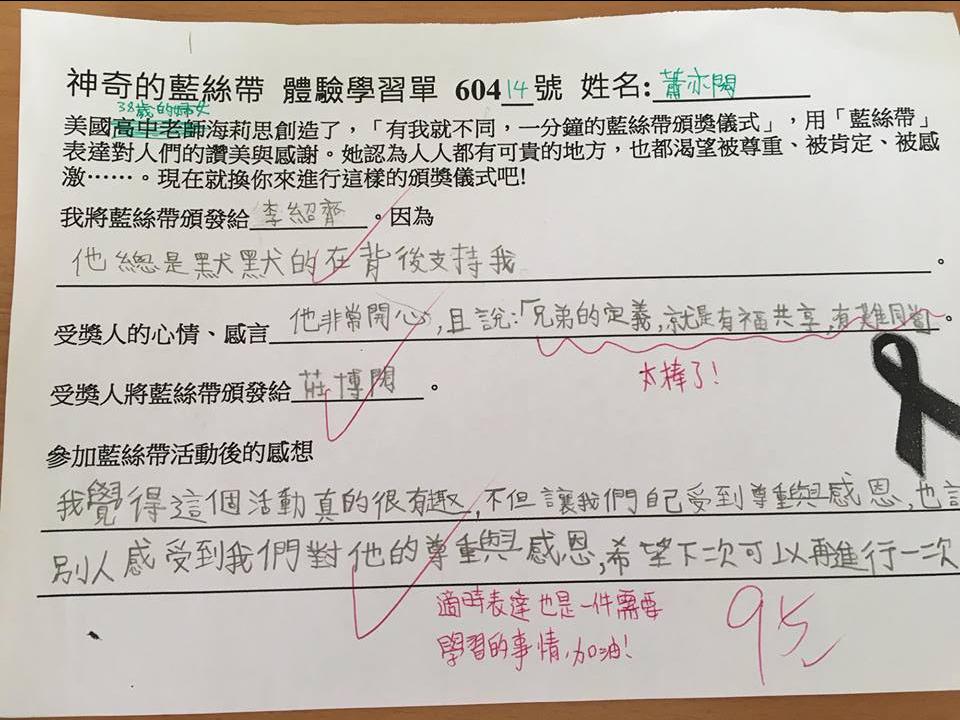 神奇的藍絲帶 體驗學習單 604 14 號 姓名:蕭亦閎
38歲的婦女
美國高中老師海莉思創造了，「有我就不同，一分鐘的藍絲帶頒獎儀式」，用「藍絲帶」
表達對人們的讚美與感謝。她認為人人都有可貴的地方，也都渴望被尊重、被肯定、被感
激……。現在就換你來進行這樣的頒獎儀式吧!
我將藍絲帶頒發給李紹齊。因為
他總是默默的在背後支持我。
受獎人的心情、感言他非常開心，且說:「兄弟的定義，就是有福共享，有難同當」。
太棒了!
受獎人將藍絲帶頒發給莊博閎。
參加藍絲帶活動後的感想
我覺得這個活動真的很有趣，不但讓我們自己受到尊重與感恩，也
別人感受到我們對他的尊重與感恩，希望下次可以再進行一次
適時表達也是一件需要
學習的事情，加油!
95